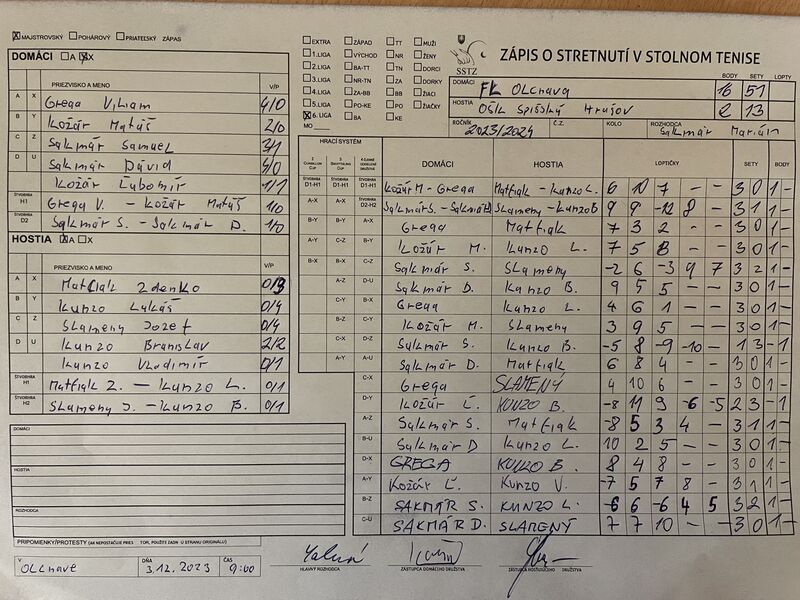 MAJSTROVSKÝ POHÁROVÝ PRIATEĽSKÝ ZÁPAS
DOMÁCI A X
PRIEZVISKO A MENO V/P
A X Grega Viliam 4/0
B Y Kožár Matúš 2/0
C Z Sakmár Samuel 3/1
D U Sakmár Dávid 5/0
Kožár Ľubomír 1/1
ŠTVORHRA H1 Grega V. - Kožár Matúš 1/0
ŠTVORHRA D2 Sakmár S. - Sakmár D. 1/0
HOSTIA A X
PRIEZVISKO A MENO V/P
A X Matfiak Zdenko 0/3
B Y Kunzo Lukáš 0/4
C Z Slameny Jozef 0/4
D U Kunzo Branislav 2/2
Kunzo Vladimír 0/1
ŠTVORHRA H1 Matfiak Z. - Kunzo L. 0/1
ŠTVORHRA H2 Slameny J. - Kunzo B. 0/1
DOMÁCI
HOSTIA
ROZHODCA
PRIPOMIENKY/PROTESTY (AK NEPOSTAČUJE PRIESTOR, POUŽITE ZADNÚ STRANU ORIGINÁLU)
V DŇA ČAS
OLCNAVE 3.12.2023 9:00
EXTRA ZÁPAD TT MUŽI
1.LIGA VÝCHOD NR ŽENY
2.LIGA BA-TT TN DORCI
3.LIGA NR-TN ZA DORKY
4.LIGA ZA-BB BB ŽIACI
5.LIGA PO-KE PO ŽIAČKY
6. LIGA BA KE
MO
SSTZ
ZÁPIS O STRETNUTÍ V STOLNOM TENISE
DOMÁCI BODY SETY LOPTY
FK OLCNAVA 16 51
HOSTIA
OŠK Spišský Hrušov 2 13
ROČNÍK Č.Z. KOLO ROZHODCA
2023/2024 Sakmár Marián
HRACÍ SYSTÉM
DOMÁCI HOSTIA LOPTIČKY SETY BODY
D1-H1 D1-H1 D1-H1 Kožár M - Grega Matfiak - Kunzo L. 6 10 7 - - 3 0 1 -
A-X A-X D2-H2 Sakmár S. - Sakmár D Slameny - Kunzo B 9 9 -12 8 - 3 1 1 -
B-Y B-Y A-X Grega Matfiak 7 3 2 - - 3 0 1 -
A-Y C-Z B-Y Kožár M. Kunzo L. 7 5 8 - - 3 0 1 -
B-X B-X C-Z Sakmár S. Slameny -2 6 -3 9 7 3 2 1 -
A-Z D-U Sakmár D. Kunzo B. 9 5 5 - - 3 0 1 -
C-Y B-X Grega Kunzo L. 4 6 1 - - 3 0 1 -
B-Z C-Y Kožár M. Slameny 3 9 5 - - 3 0 1 -
C-X Sakmár S Kunzo B. -5 8 -9 -10 - 1 3 - 1
A-Y A-U Sakmár D. Matfiak 6 8 4 - - 3 0 1 -
C-X Grega SLAMENÝ 4 10 6 - - 3 0 1 -
D-Y Kožár Ľ. KUNZO B. -8 11 9 -6 -5 2 3 - 1
A-Z Sakmár S. Matfiak -8 5 3 4 - 3 1 1 -
B-U Sakmár D Kunzo L. 10 2 5 - - 3 0 1 -
D-X GREGA KUNZO B. 8 4 8 - - 3 0 1 -
A-Y Kožár Ľ. Kunzo V. -7 5 7 8 - 3 1 1 -
B-Z SAKMÁR S. KUNZO L. -6 6 -6 4 5 3 2 1 -
C-U SAKMÁR D. SLAMENÝ 7 7 10 - - 3 0 1 -
HLAVNÝ ROZHODCA ZÁSTUPCA DOMÁCEHO DRUŽSTVA ZÁSTUPCA HOSŤUJÚCEHO DRUŽSTVA